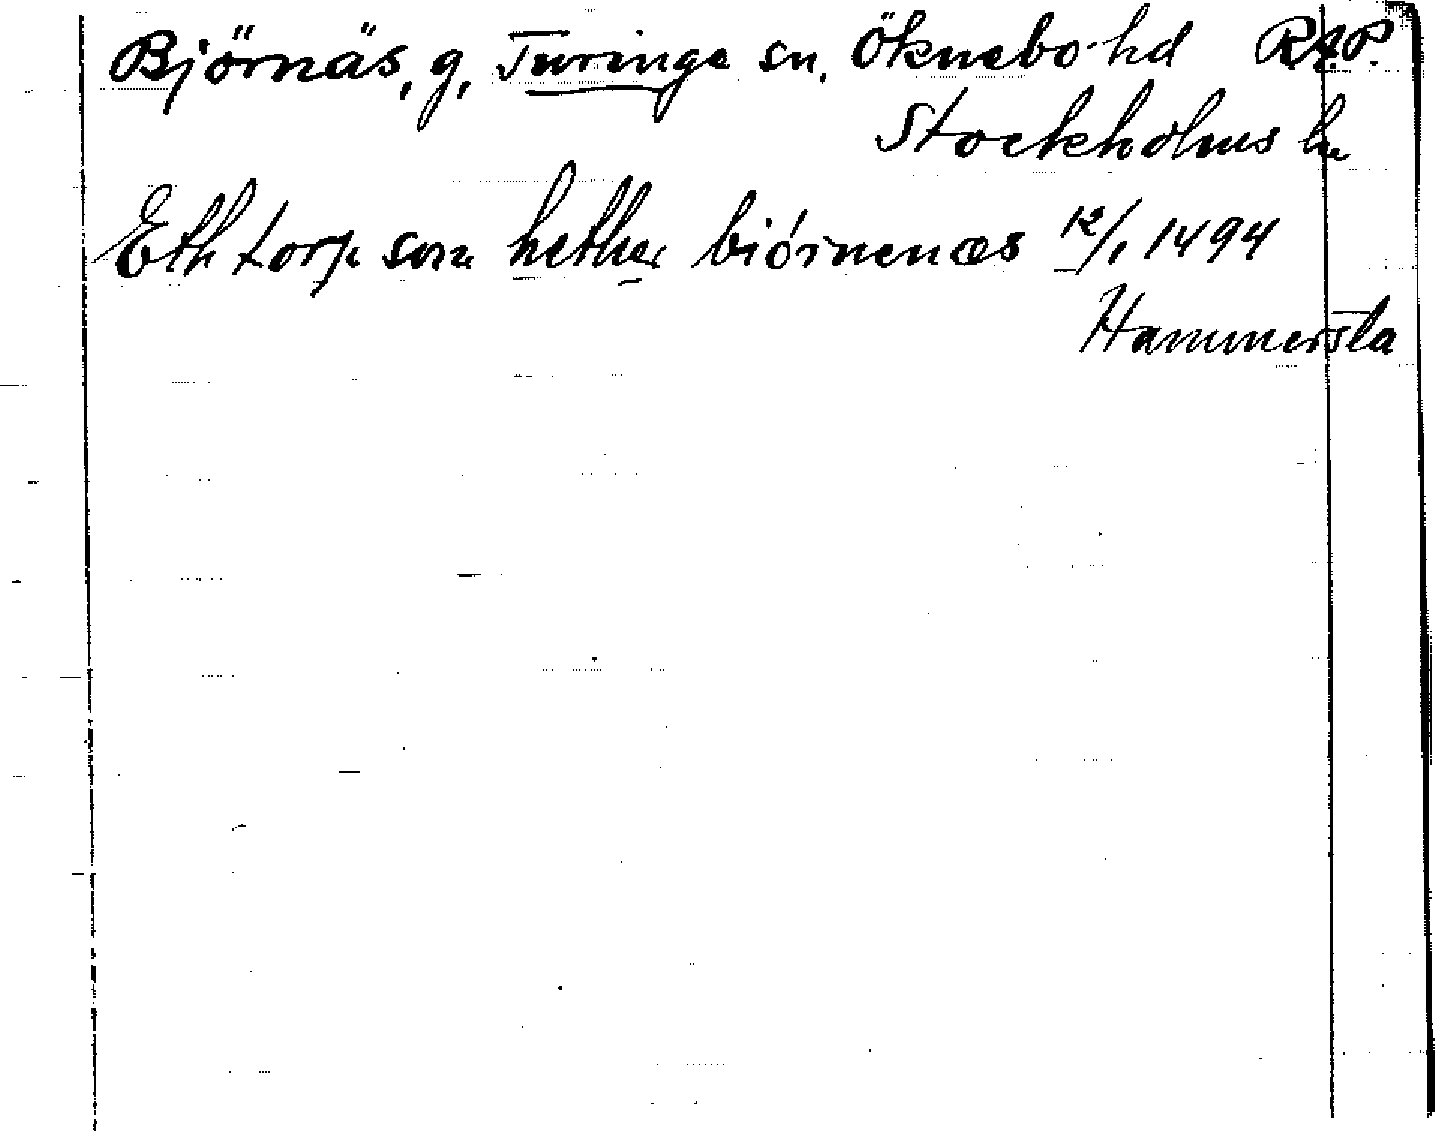 Björnäs, g, Turinge sn, Öknebo hd RAP.
Stockholms ln
Eth torp som hether biörnenæs 12/1 1494
Hammersta